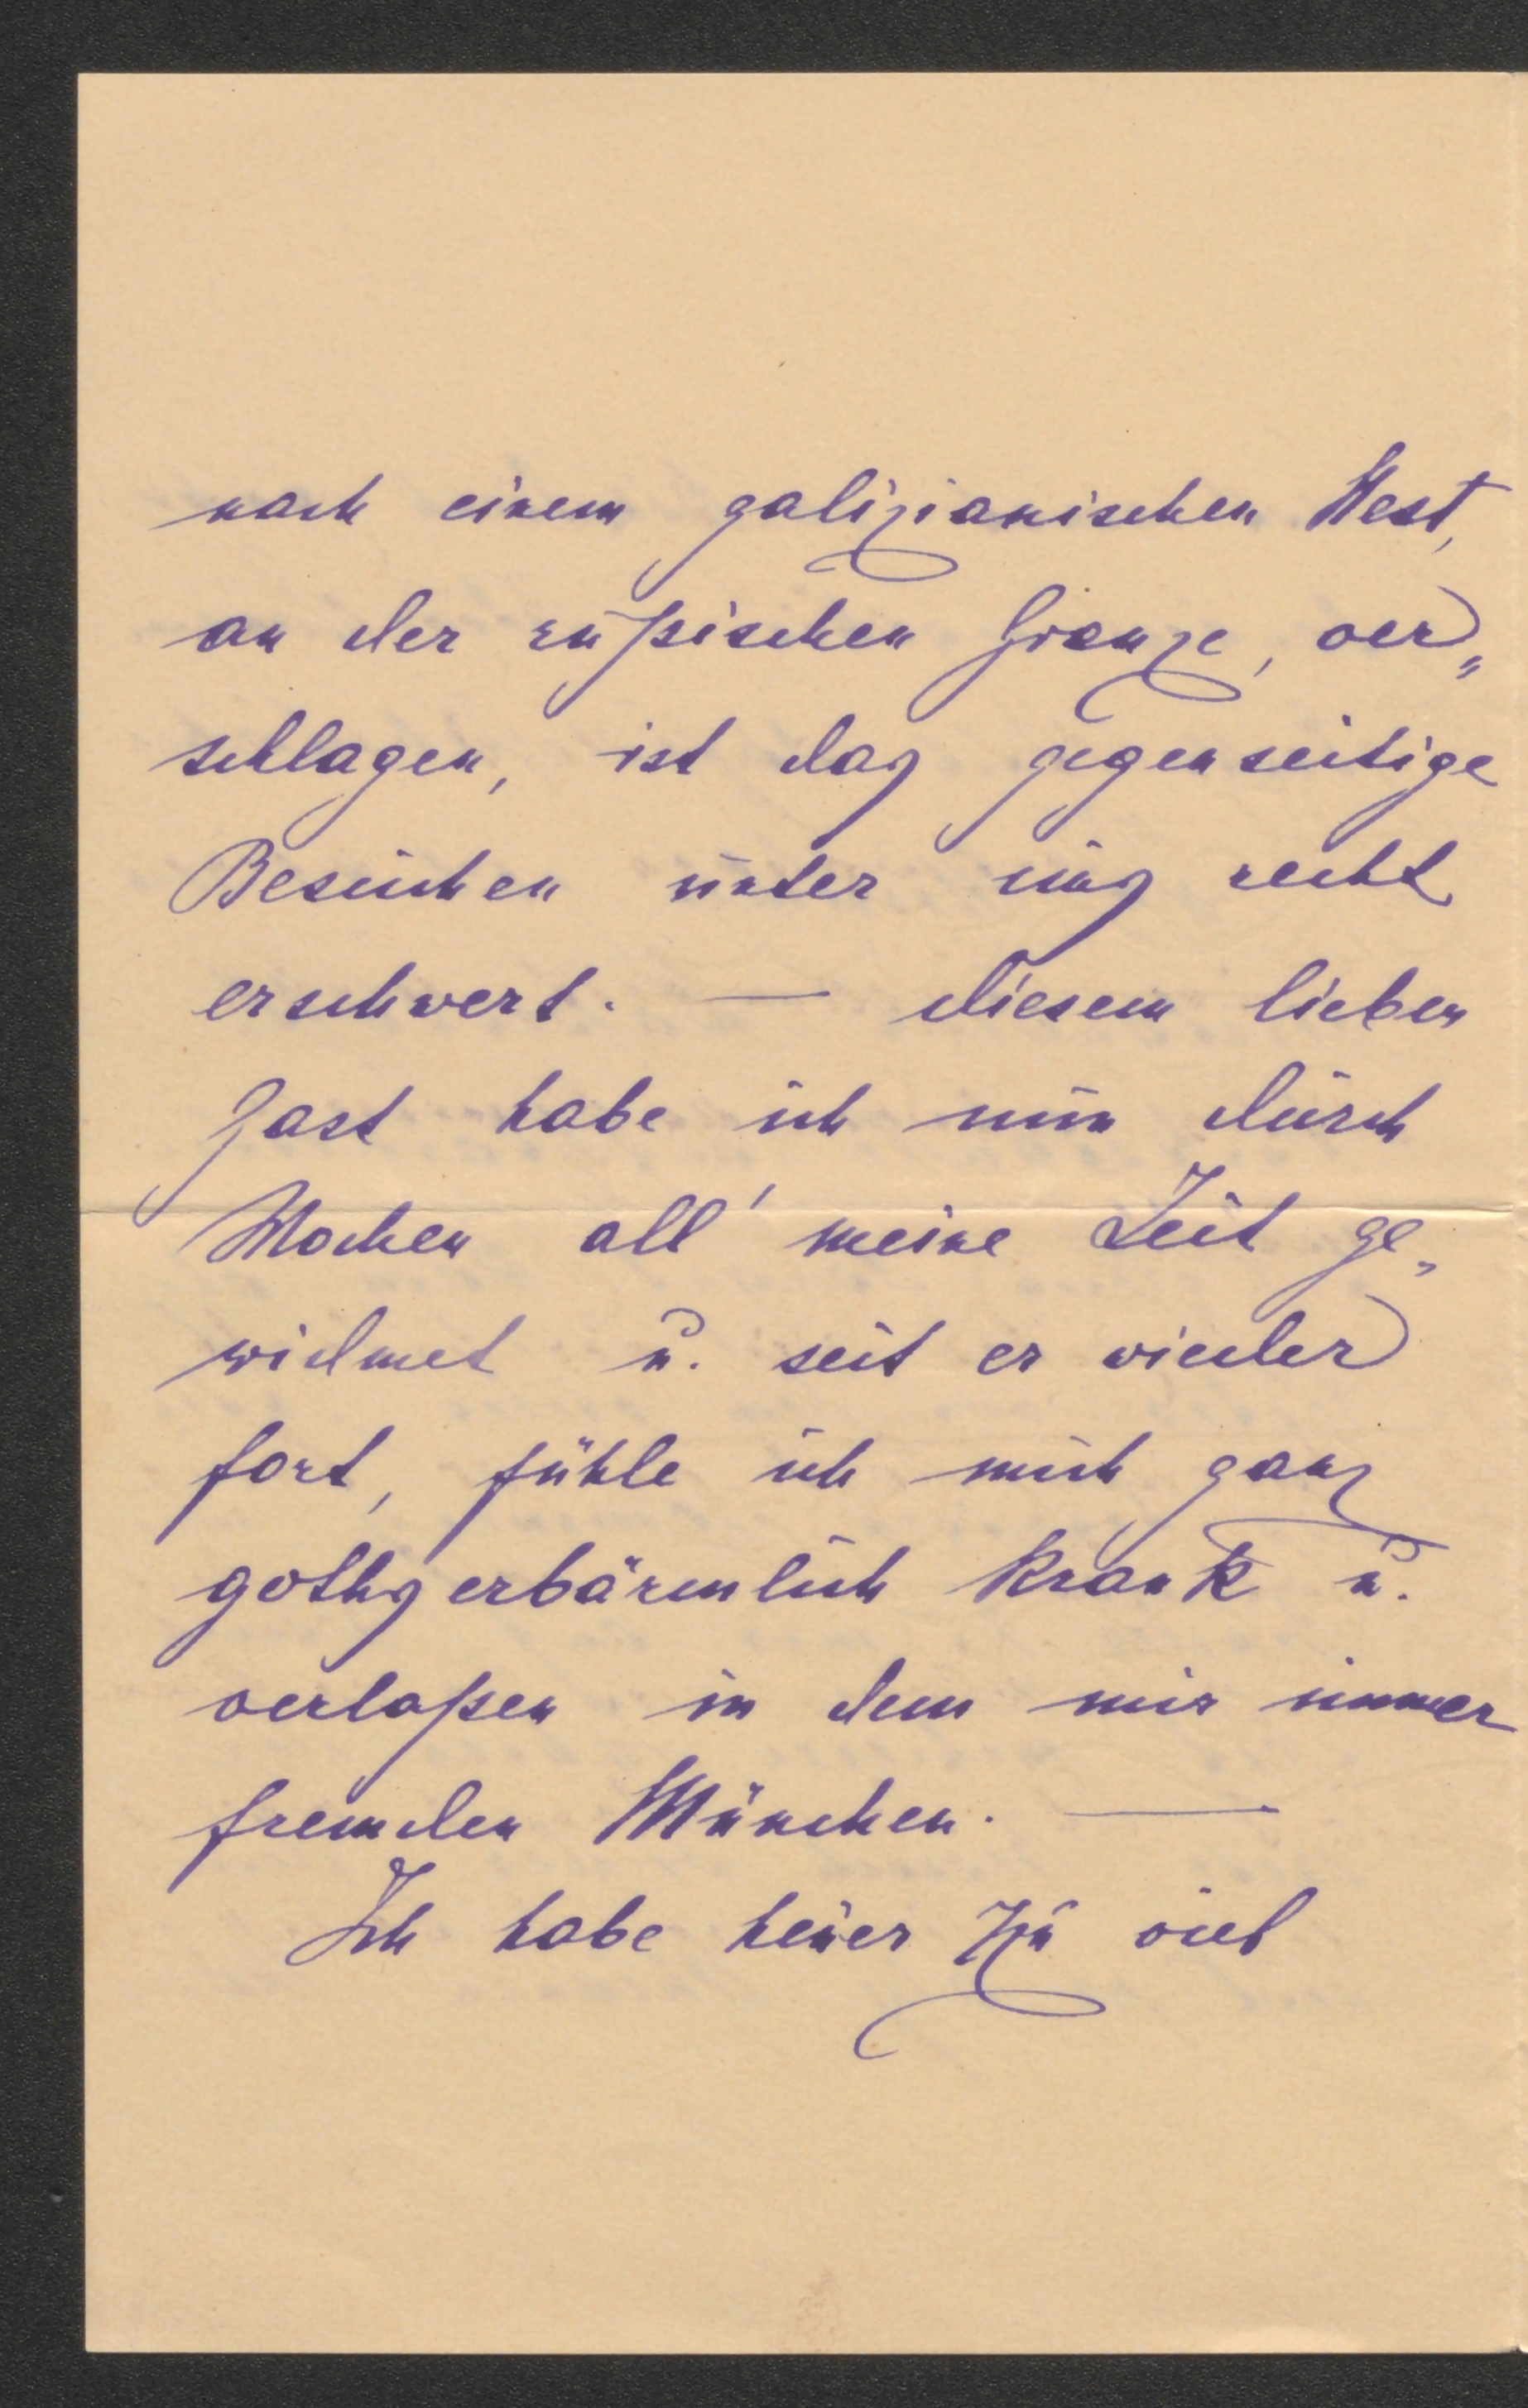 nach einem galizianischen Nest,
an der rußischen Grenze, ver„
schlagen, ist das gegenseitige
Besuchen unter uns recht
erschwert. — Diesem lieben
Gast habe ich nun durch
Wochen all' meine Zeit ge„
widmet u. seit er wieder
fort, fühle ich mich ganz
gothserbärmlich krank u.
verlaßen in dem mir immer
fremden München. —
Ich habe heuer zu viel